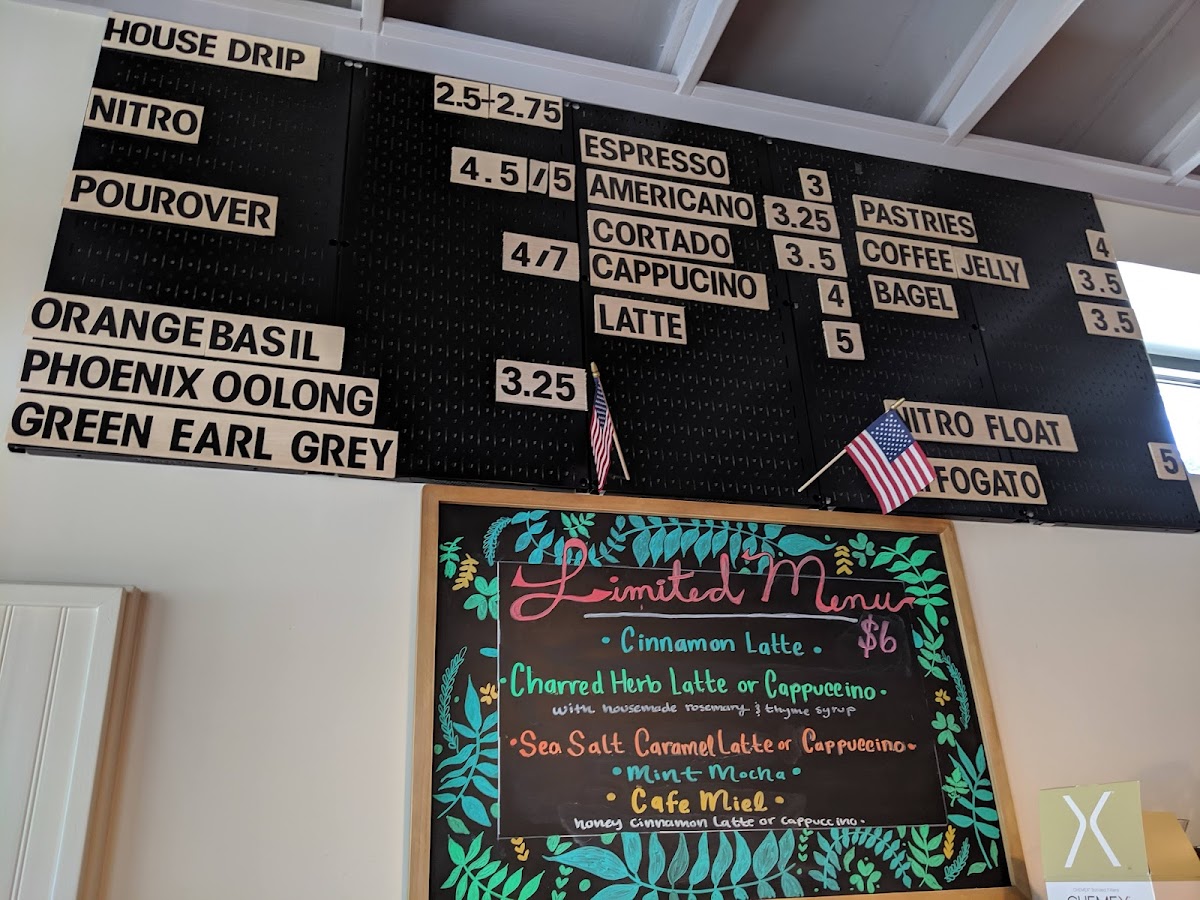 HOUSE DRIP 2.5-2.75
NITRO 4.5/5
POUROVER 4/7
ORANGE BASIL
PHOENIX OOLONG 3.25
GREEN EARL GREY
ESPRESSO 3
AMERICANO 3.25
CORTADO 3.5
CAPPUCINO 4
LATTE 5
PASTRIES 4
COFFEE JELLY 3.5
BAGEL 3.5
NITRO FLOAT 5
FFOGATO
Limited Menu
$6
• Cinnamon Latte •
• Charred Herb Latte or Cappuccino •
with housemade rosemary & thyme syrup
• Sea Salt Caramel Latte or Cappuccino •
• Mint Mocha •
• Cafe Miel •
honey cinnamon latte or cappuccino •
X
CHEMEX